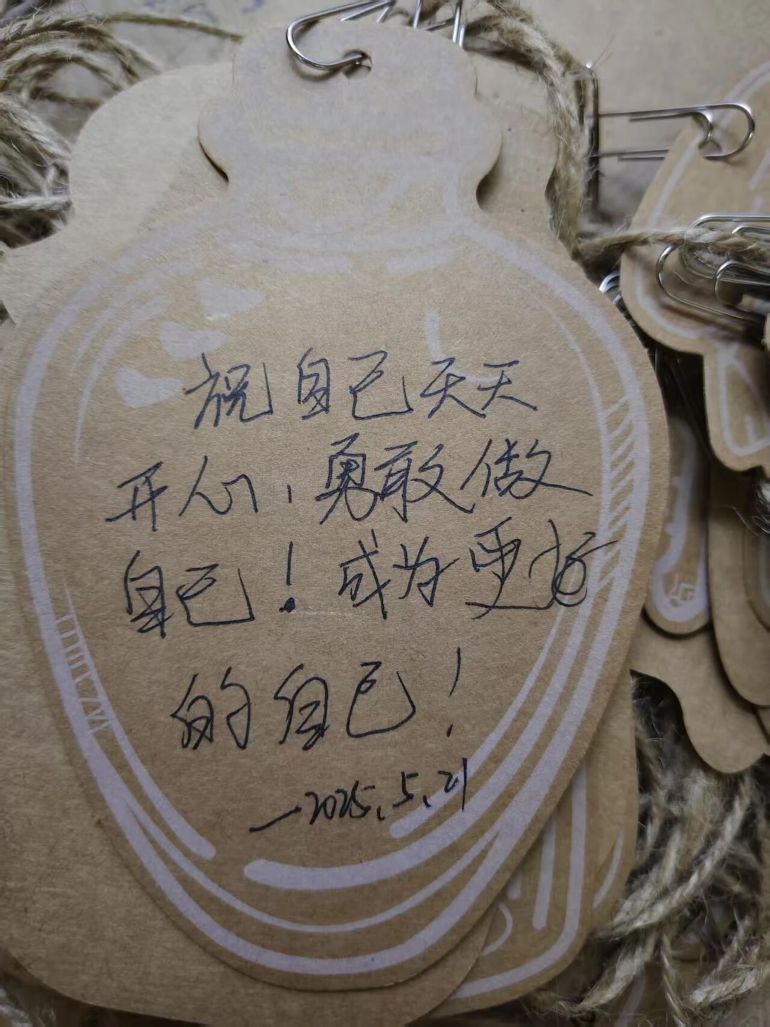 祝自己天天
开心、勇敢做
自己！成为更好
的自己！
—2025.5.21